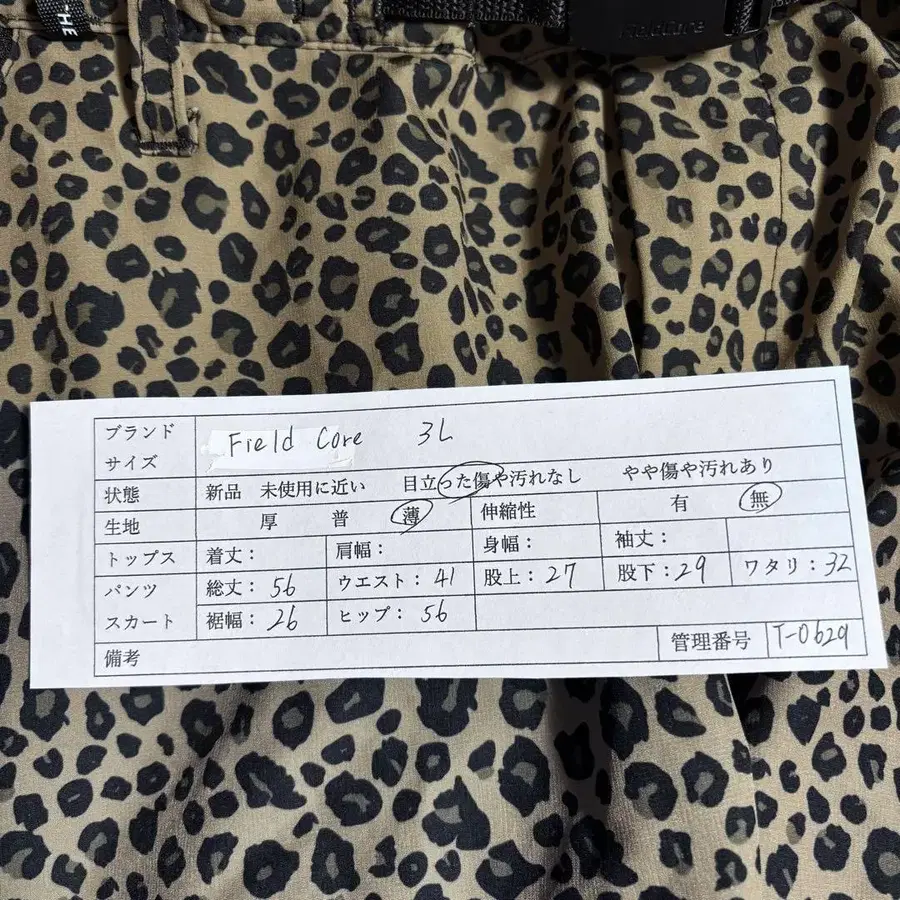 -HE
FieldCore
ブランド
サイズ
Field Core 3L
状態 新品 未使用に近い 目立った傷や汚れなし やや傷や汚れあり
生地 厚 普 薄 伸縮性 有 無
トップス 着丈: 肩幅: 身幅: 袖丈:
パンツ 総丈: 56 ウエスト: 41 股上: 27 股下: 29 ワタリ: 32
スカート 裾幅: 26 ヒップ: 56
備考 管理番号 T-0629